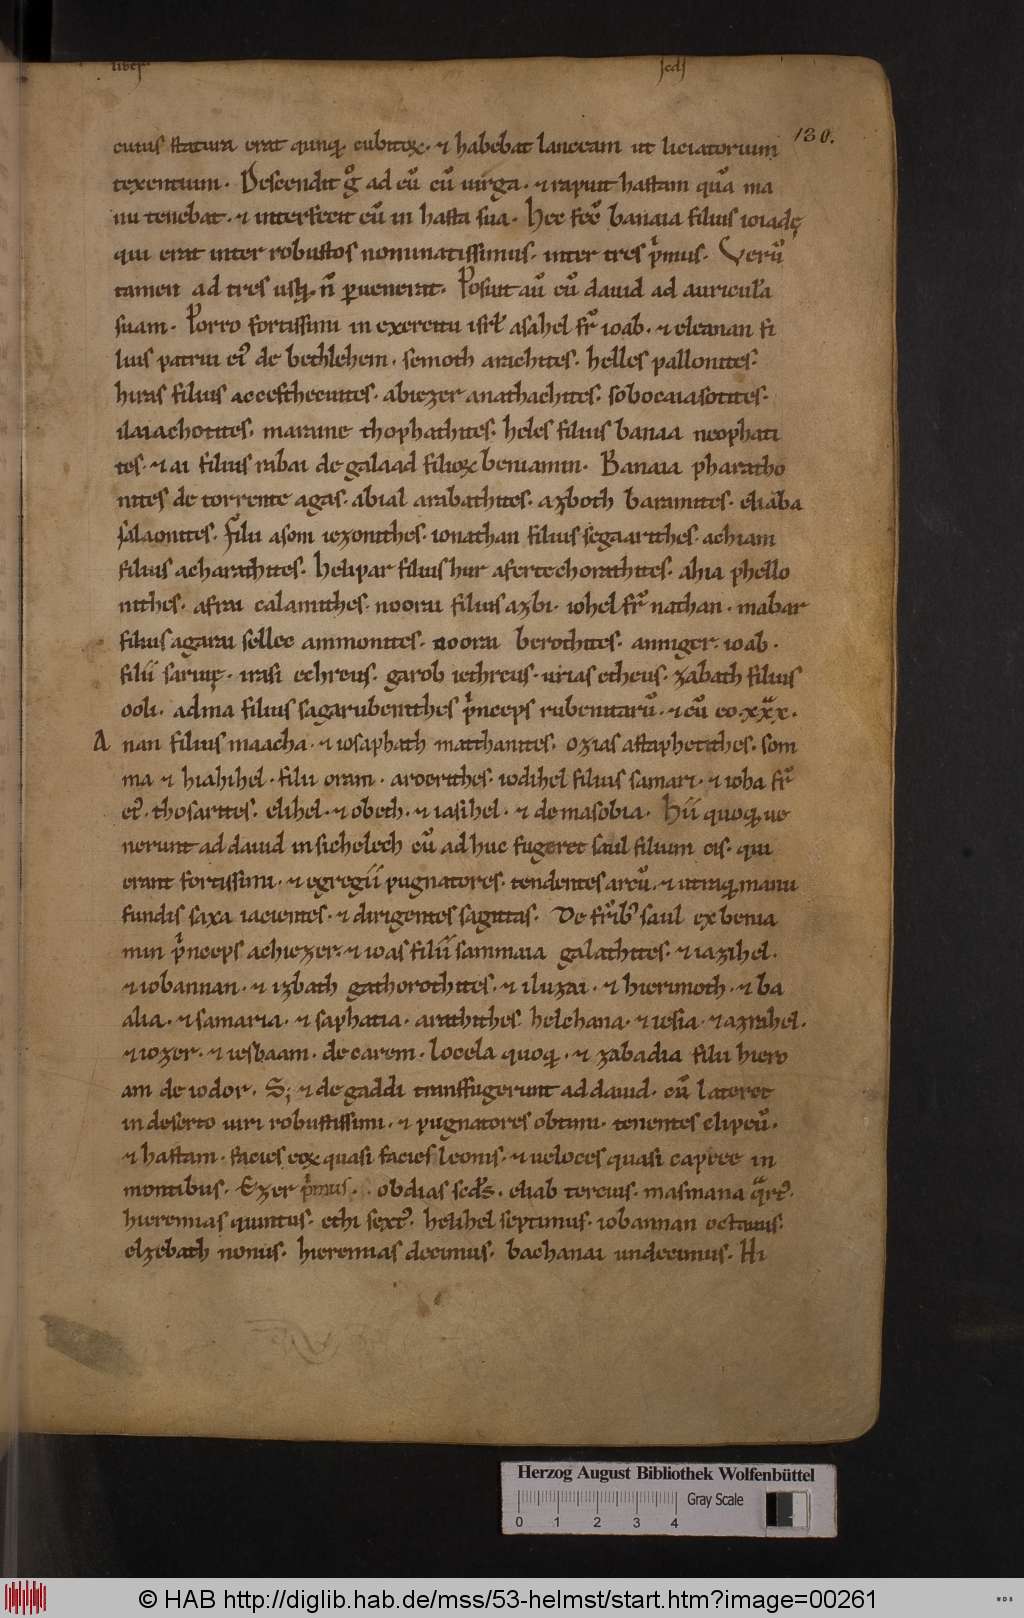 liber scds
130.
cuius statura erat quinq; cubitoꝝ. ⁊ habebat lanceam ut liciatorium
texentium. Descendit gͦ ad eū cū uirga. ⁊ rapuit hastam quā ma
nu tenebat. ⁊ interfecit eū in hasta sua. Hec fecͭ banaia filius ioiadę
qui erat inter robustos nominatissimus. inter tres pͥmus. Verū
tamen ad tres usq; n̄ ꝑuenerat. Posuit aū eū dauid ad auriculā
suam. Porro fortissimi in exercitu isrł asahel fr̄ ioab. ⁊ eleanan fi
lius patrui eiꝰ de bethlehem. semoth arichites. helles pallonites.
hiras filius accesthecuites. abiezer anathachites. sobocaiasotites.
ilaiachotites. marane thophathites. heles filius banaa neophati
tes. ⁊ ai filius rabai de galaad filioꝝ beniamin. Banaia pharatho
nites de torrente agas. abial arabathites. azboth baramites. eliaba
salaonites. Filii asom iezonithes. ionathan filius segaarithes. achiam
filius acharathites. Helipar filius hur afertechorathites. ahia phello
nithes. afrai calamithes. noorai filius azbi. iohel fr̄ nathan. mabar
filius agarai sellec ammonites. noorai berothites. armiger. ioab.
filii saruię. irasi ethreus. garob iethreus. urias etheus. zabath filius
ooli. adina filius sagarubenithes pͥnceps rubenitarū. ⁊ cū eo.xxx.
Anan filius maacha. ⁊ iosaphath matthanites. ozias astaphetithes. som
ma ⁊ hiahihel. filii oram. aroerithes. iodihel filius samari. ⁊ ioha fr̄
eiꝰ. thosarites. elihel. ⁊ obeth. ⁊ iasihel. ⁊ de masobia. Hii quoq; ue
nerunt ad dauid in sichelech cū ad huc fugeret saul filium cis. qui
erant fortissimi. ⁊ egregii pugnatores. tendentes arcū. ⁊ utraq; manu
fundis saxa iacientes. ⁊ dirigentes sagittas. De fr̄ibꝰ saul ex benia
min pͥnceps achiezer. ⁊ ioas filii sammaia galathites. ⁊ iazihel.
⁊ iobannan. ⁊ izbath gathorothites. ⁊ iluzai. ⁊ hierimoth. ⁊ ba
alia. ⁊ samaria. ⁊ saphatia. arathithes helchana. ⁊ iesia. ⁊ azrahel.
⁊ iozer. ⁊ iesbaam. de carem. locela quoq;. ⁊ zabadia filii hiero
am de iodor. S; ⁊ de gaddi transfugerunt ad dauid. cū lateret
in deserto uiri robustissimi. ⁊ pugnatores obtimi. tenentes clipeū.
⁊ hastam. facies eoꝝ quasi facies leonis. ⁊ ueloces quasi capree in
montibus. Ezer pͥmus. obdias scd̄s. eliab tercius. masmana qͣrtꝰ.
hieremias quintus. ethi sextꝰ. helihel septimus. iobannan octauus.
elzebath nonus. hieremias decimus. bachanai undecimus. Hi
Herzog August Bibliothek Wolfenbüttel
Gray Scale
0 1 2 3 4
© HAB http://diglib.hab.de/mss/53-helmst/start.htm?image=00261